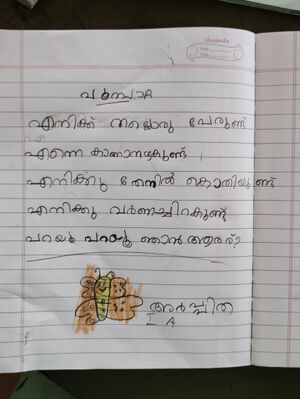 classmate
Date
Page
എനിക്ക് നല്ലൊരു പേരുണ്ട്
എന്നെ കാണാനഴകുണ്ട്
എനിക്കു തേനിൽ കൊതിയുണ്ട്
എനിക്കു വർണച്ചിറകുണ്ട്
പറയൂ പറയൂ ഞാൻ ആരര്?
അർപ്പിത
I A